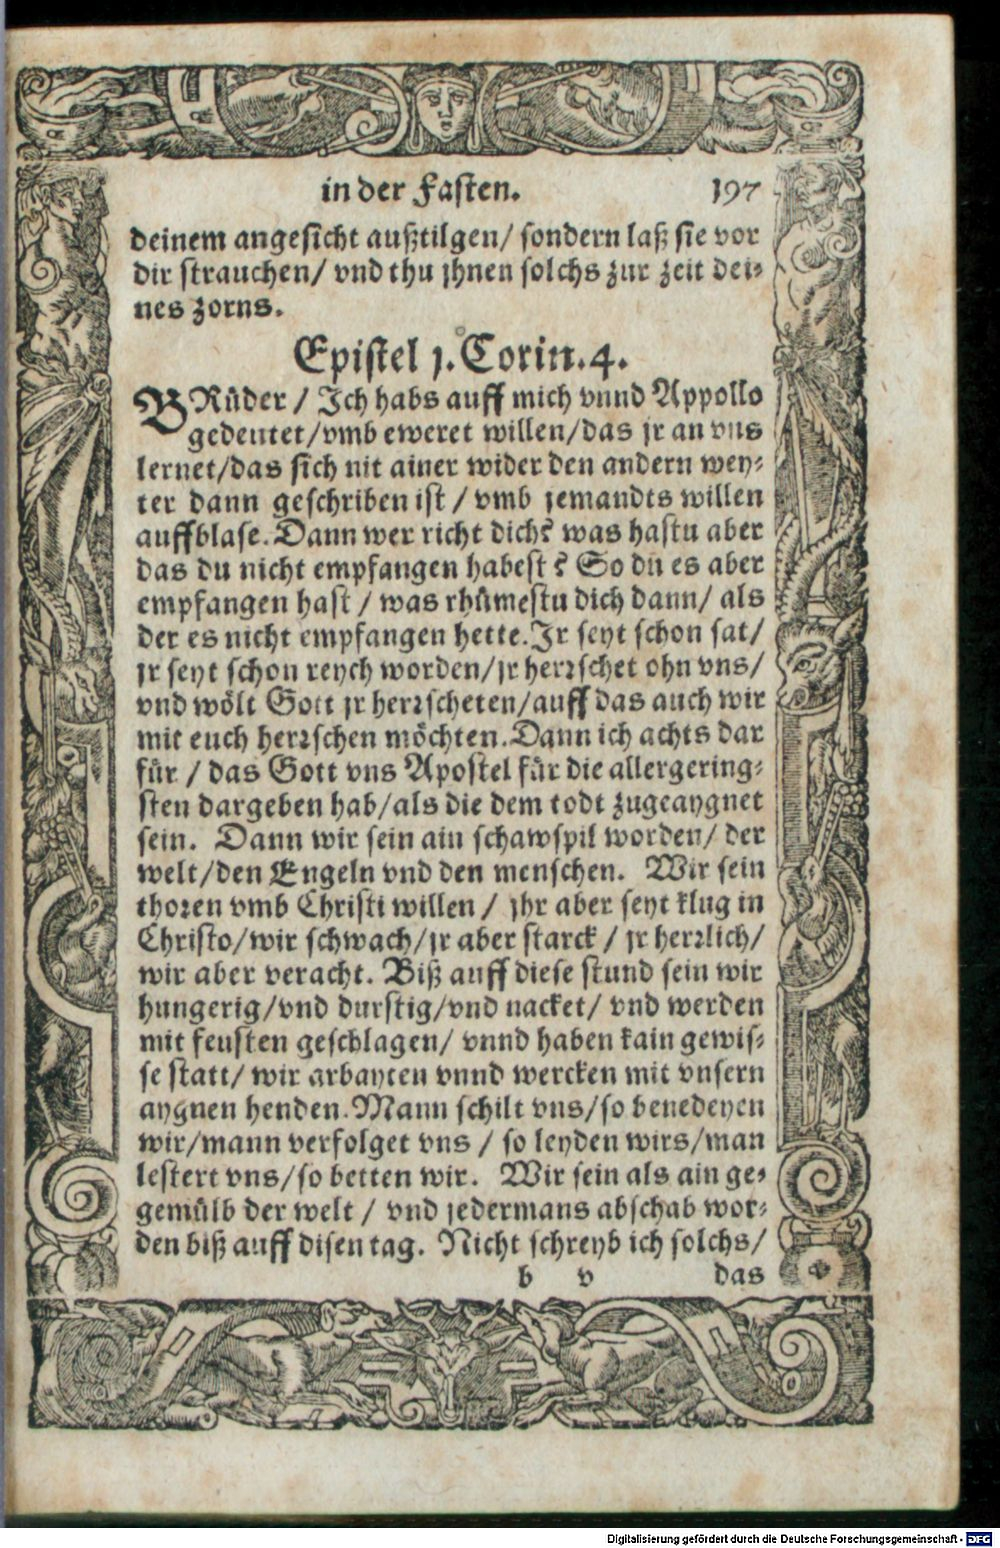 in der Fasten. 197
deinem angesicht außtilgen/ sondern laß sie vor
dir strauchen/ vnd thu jhnen solchs zur zeit dei⸗
nes zorns.
Epistel j. Corin. 4.
BRüder / Ich habs auff mich vnnd Appollo
gedeutet/vmb eweret willen/das jr an vns
lernet/das sich nit ainer wider den andern wey⸗
ter dann geschriben ist / vmb jemandts willen
auffblase. Dann wer richt dich? was hastu aber
das du nicht empfangen habest? So du es aber
empfangen hast / was rhümestu dich dann/ als
der es nicht empfangen hette. Jr seyt schon sat/
jr seyt schon reych worden/jr herrschet ohn vns/
vnd wölt Gott jr herrscheten/auff das auch wir
mit euch herrschen möchten. Dann ich achts dar
für / das Gott vns Apostel für die allergering⸗
sten dargeben hab/als die dem todt zugeaygnet
sein. Dann wir sein ain schawspil worden/ der
welt/den Engeln vnd den menschen. Wir sein
thoren vmb Christi willen / jhr aber seyt klug in
Christo/wir schwach/jr aber starck / jr herrlich/
wir aber veracht. Biß auff diese stund sein wir
hungerig/vnd durstig/vnd nacket/ vnd werden
mit feusten geschlagen/ vnnd haben kain gewis⸗
se statt/ wir arbayten vnnd wercken mit vnsern
aygnen henden. Mann schilt vns/so benedeyen
wir/mann verfolget vns / so leyden wirs/man
lestert vns/so betten wir. Wir sein als ain ge⸗
gemülb der welt / vnd jedermans abschab wor⸗
den biß auff disen tag. Nicht schreyb ich solchs/
b v das
Digitalisierung gefördert durch die Deutsche Forschungsgemeinschaft - DFG